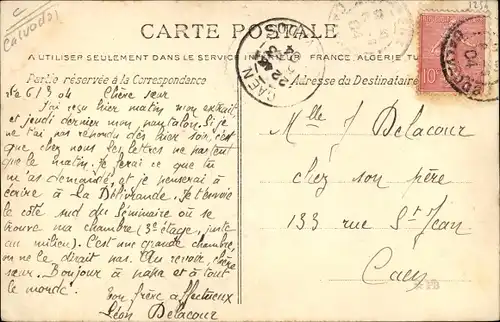 C
(Calvados)
CARTE POSTALE
A UTILISER SEULEMENT DANS LE SERVICE INTÉRIEUR FRANCE, ALGERIE, TU
Partie réservée à la Correspondance
Adresse du Destinataire
CAEN
10
Le 6/3 04 Chère sœur
J'ai reçu hier matin mon extrait
et jeudi dernier mon pantalon. Si je
ne t'ai pas répondu dès hier soir, c'est
que chez nous les lettres ne partent
que le matin. Je ferai ce que tu
m'as demandé, et je penserai à
écrire à la Délivrande. Je t'envoie
le côté sud du Séminaire où se
trouve ma chambre (3e étage, juste
au milieu). C'est une grande chambre,
on ne le dirait pas. Au revoir, chère
sœur. Bonjour à papa et à tout
le monde.
Ton frère affectueux
Léon Delacour
Mlle J Delacour
chez son père
133 rue St Jean
Caen